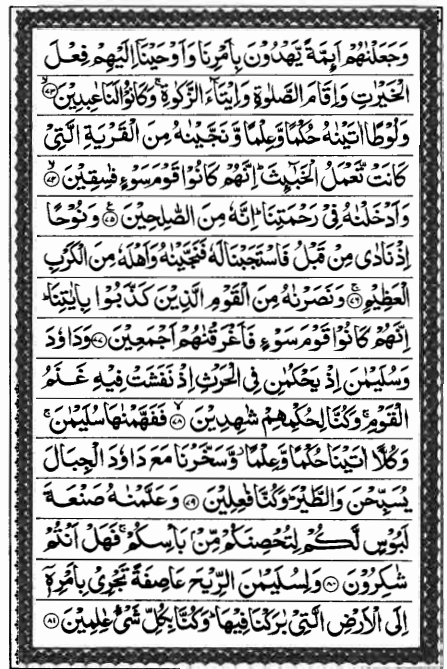 وَجَعَلۡنٰهُمۡ اَىِٕمَّةً يَّهۡدُوۡنَ بِاَمۡرِنَا وَاَوۡحَيۡنَاۤ اِلَيۡهِمۡ فِعۡلَ
الۡخَيۡرٰتِ وَاِقَامَ الصَّلٰوةِ وَاِيۡتَآءَ الزَّكٰوةِ‌ۚ وَكَانُوۡا لَنَا عٰبِدِيۡنَ ۙ‏﴿۷۳﴾
وَلُوۡطًا اٰتَيۡنٰهُ حُكۡمًا وَّعِلۡمًا وَّنَجَّيۡنٰهُ مِنَ الۡقَرۡيَةِ الَّتِىۡ
كَانَتۡ تَّعۡمَلُ الۡخَبٰٓٮِٕثَ‌ؕ اِنَّهُمۡ كَانُوۡا قَوۡمَ سَوۡءٍ فٰسِقِيۡنَ ۙ‏﴿۷۴﴾
وَاَدۡخَلۡنٰهُ فِىۡ رَحۡمَتِنَا‌ؕ اِنَّهٗ مِنَ الصّٰلِحِيۡنَ ﴿۷۵﴾ وَنُوۡحًا
اِذۡ نَادٰى مِنۡ قَبۡلُ فَاسۡتَجَبۡنَا لَهٗ فَنَجَّيۡنٰهُ وَاَهۡلَهٗ مِنَ الۡكَرۡبِ
الۡعَظِيۡمِ‌ۚ‏﴿۷۶﴾ وَنَصَرۡنٰهُ مِنَ الۡقَوۡمِ الَّذِيۡنَ كَذَّبُوۡا بِاٰيٰتِنَا‌ؕ
اِنَّهُمۡ كَانُوۡا قَوۡمَ سَوۡءٍ فَاَغۡرَقۡنٰهُمۡ اَجۡمَعِيۡنَ‏﴿۷۷﴾ وَدَاوٗدَ
وَسُلَيۡمٰنَ اِذۡ يَحۡكُمٰنِ فِى الۡحَـرۡثِ اِذۡ نَفَشَتۡ فِيۡهِ غَنَمُ
الۡقَوۡمِ‌ۚ وَكُنَّا لِحُكۡمِهِمۡ شٰهِدِيۡنَ ۙ‏﴿۷۸﴾ فَفَهَّمۡنٰهَا سُلَيۡمٰنَ‌ۚ
وَكُلًّا اٰتَيۡنَا حُكۡمًا وَّعِلۡمًا‌ وَّسَخَّرۡنَا مَعَ دَاوٗدَ الۡجِبَالَ
يُسَبِّحۡنَ وَالطَّيۡرَ‌ؕ وَكُنَّا فٰعِلِيۡنَ‏﴿۷۹﴾ وَعَلَّمۡنٰهُ صَنۡعَةَ
لَبُوۡسٍ لَّكُمۡ لِتُحۡصِنَكُمۡ مِّنۡۢ بَاۡسِكُمۡ‌ۚ فَهَلۡ اَنۡـتُمۡ
شٰكِرُوۡنَ‏﴿۸۰﴾ وَلِسُلَيۡمٰنَ الرِّيۡحَ عَاصِفَةً تَجۡرِىۡ بِاَمۡرِهٖۤ
اِلَى الۡاَرۡضِ الَّتِىۡ بٰرَكۡنَا فِيۡهَا‌ؕ وَكُنَّا بِكُلِّ شَىۡءٍ عٰلِمِيۡنَ‏﴿۸۱﴾